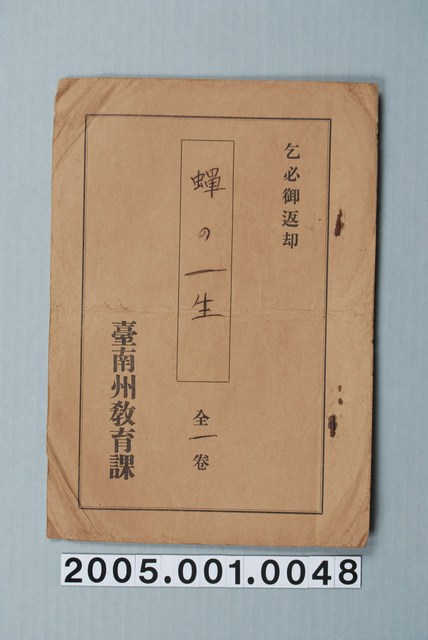 乞必御返却
蟬の一生
全一卷
臺南州教育課
2005.001.0048